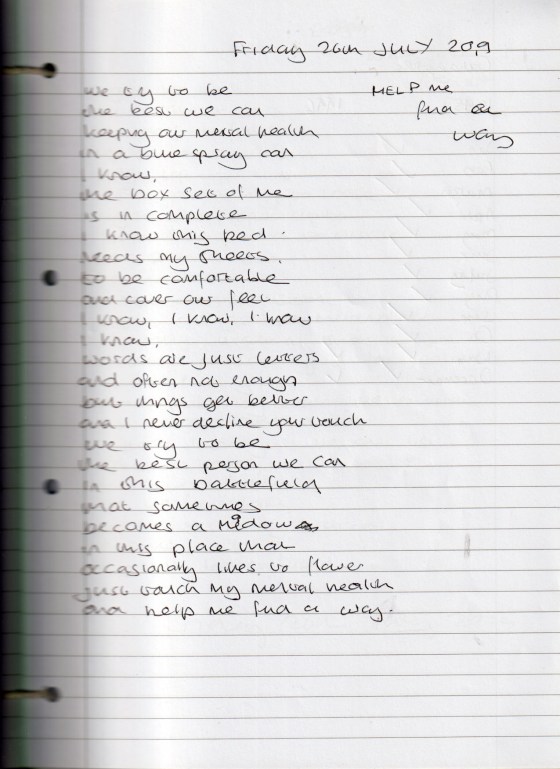 Friday 26th JULY 2019
HELP me
find a
way
we try to be
the best we can
keeping our mental health
in a blue spray can
I know,
the box set of me
is in complete
I know this bed.
needs my sheets.
to be comfortable
and cover our feet
I know, I know, I know
I know,
words are just letters
and often not enough
but things get better
and I never decline your touch
we try to be
the best person we can
in this battlefield
that sometimes
becomes a
in this place that
occasionally likes to flower
just touch my mental health
and help me find a way.